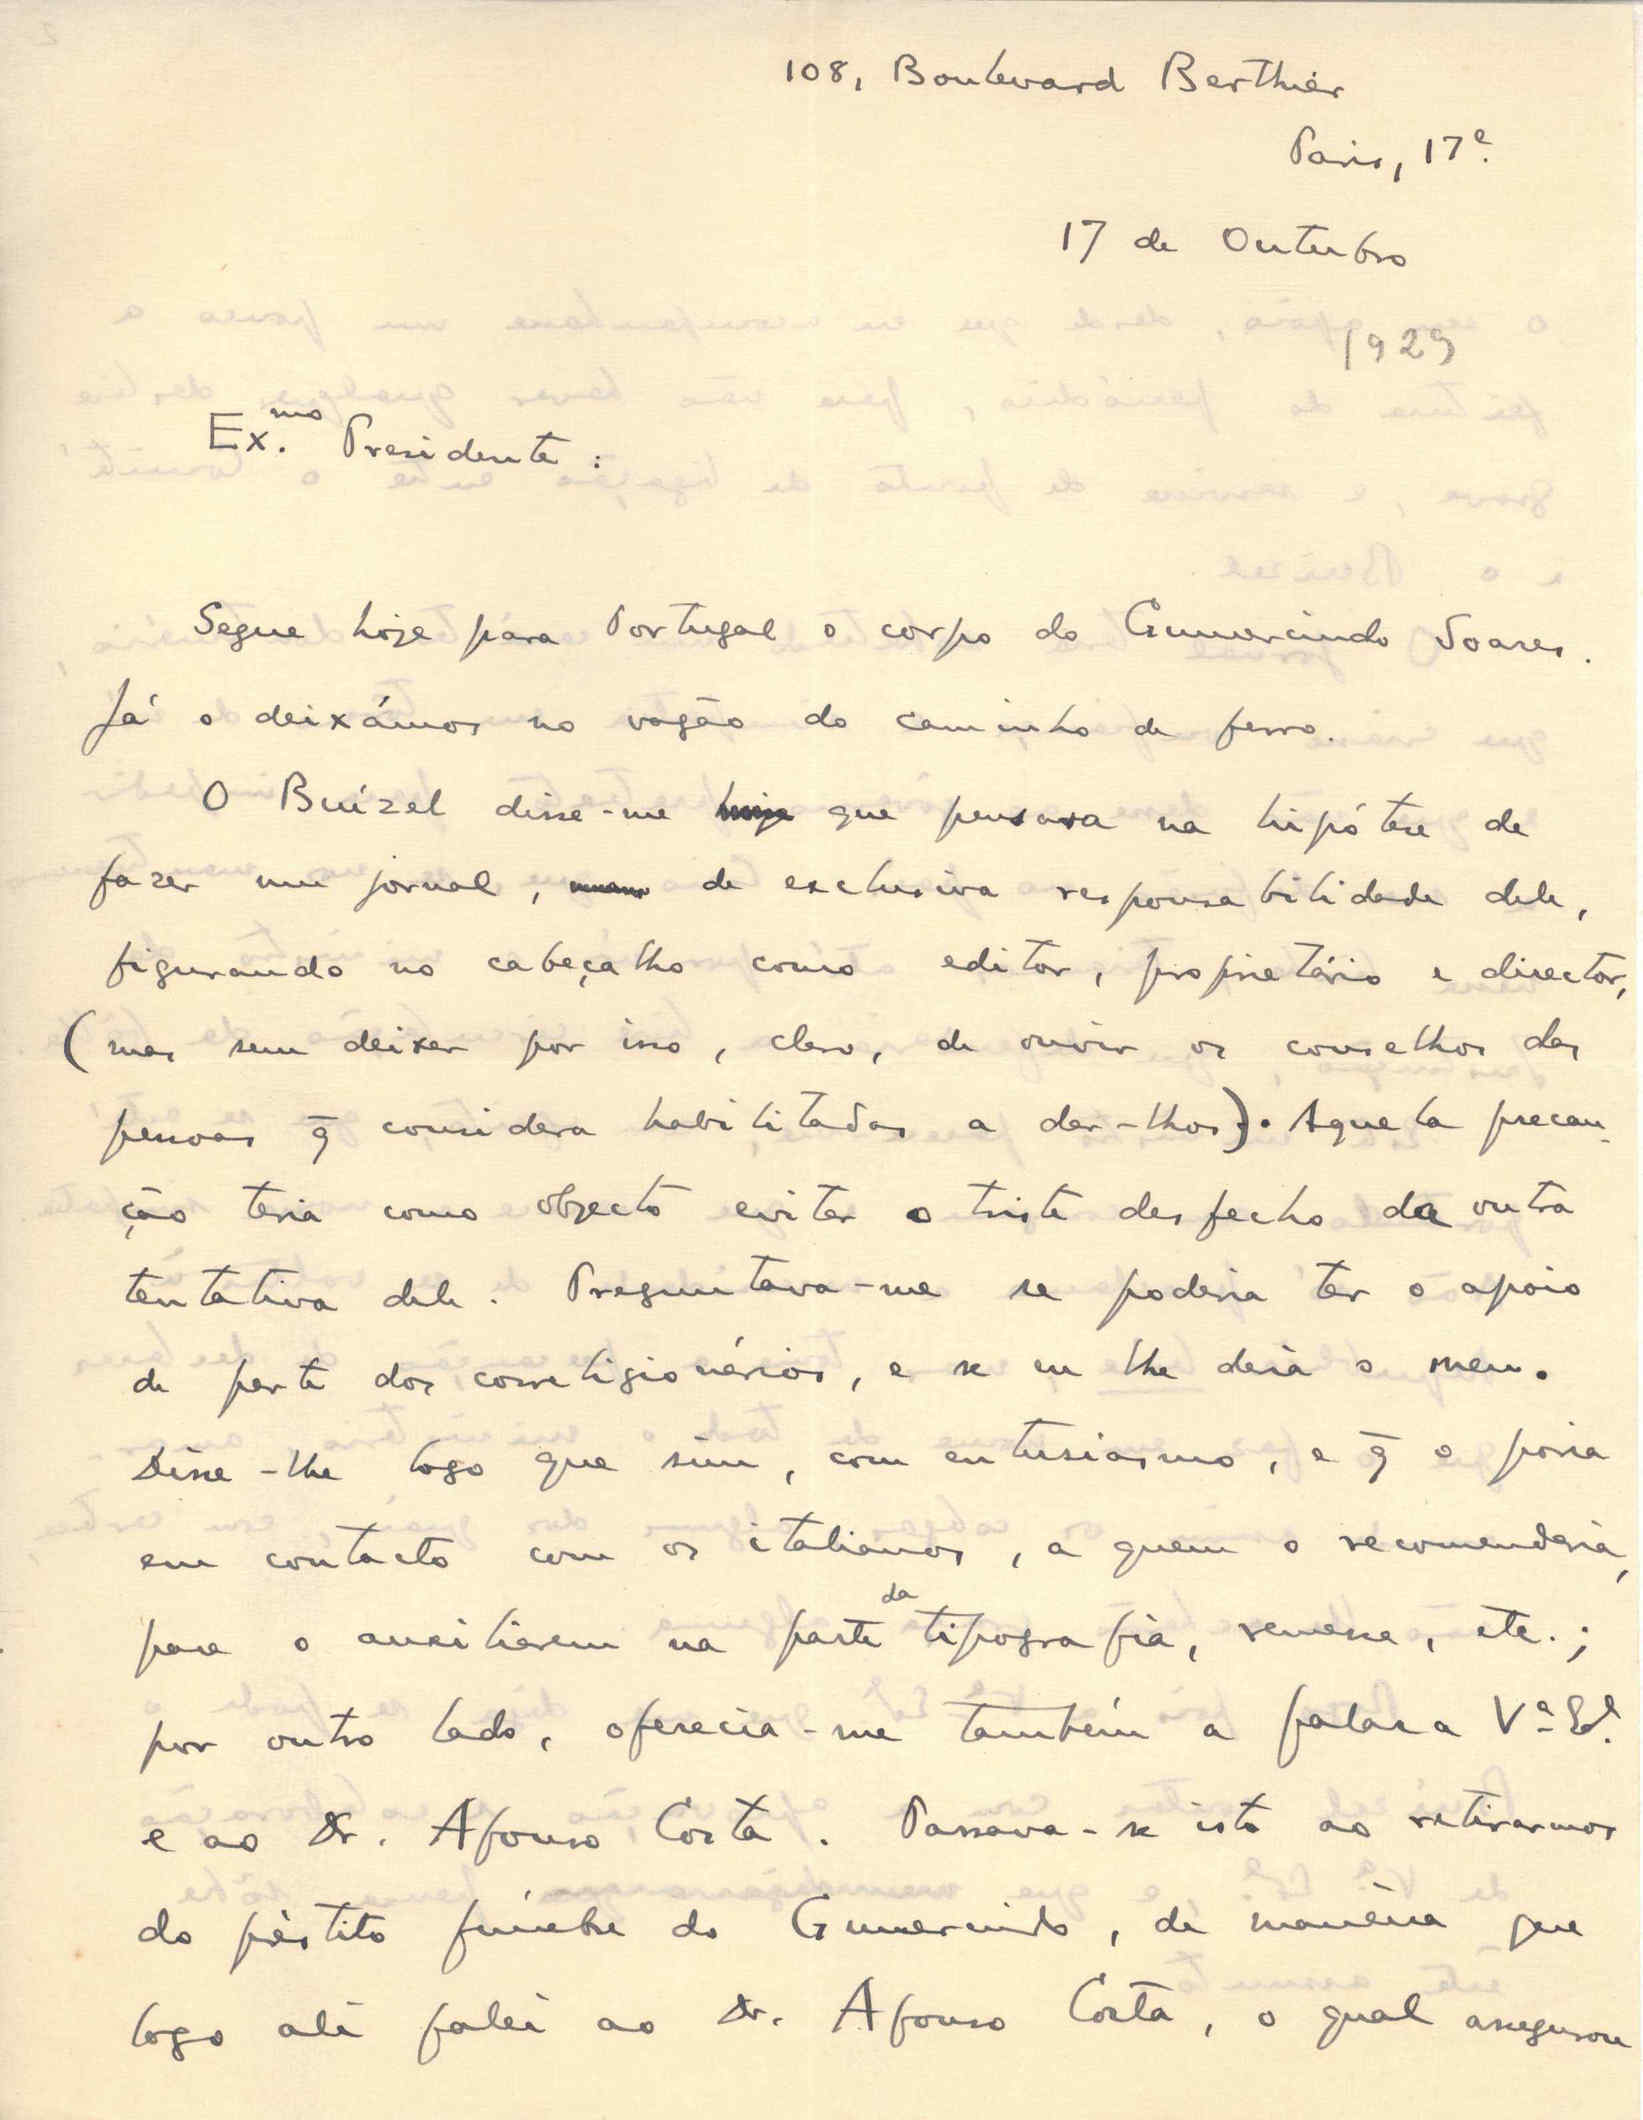 108, Boulevard Berthier
Paris, 17e.
17 de Outubro
1929
Ex.mo Presidente:
Segue hoje para Portugal o corpo do Gumercindo Soares.
Já o deixámos no vagão do caminho de ferro.
O Buízel disse-me que pensava na hipótese de
fazer um jornal, de exclusiva responsabilidade dele,
figurando no cabeçalho como editor, proprietário e director,
(mas sem deixar por isso, claro, de ouvir os conselhos das
pessoas q̄ considera habilitadas a dar-lhos). Aquela precau-
ção teria como objecto evitar o triste desfecho da outra
tentativa dele. Preguntava-me se poderia ter o apoio
de parte dos correligionários, e se eu lhe daria o meu.
Disse-lhe logo que sim, com entusiasmo, e q̄ o poria
em contacto com os italianos, a quem o recomendaria,
para o auxiliarem na parte da tipografia, remessa, etc.;
por outro lado, oferecia-me também a falar a V.ª Ex.ª
e ao Dr. Afonso Costa. Passava-se isto ao retirarmos
do préstito fúnebre do Gumercindo, de maneira que
logo ali falei ao Dr. Afonso Costa, o qual assegurou